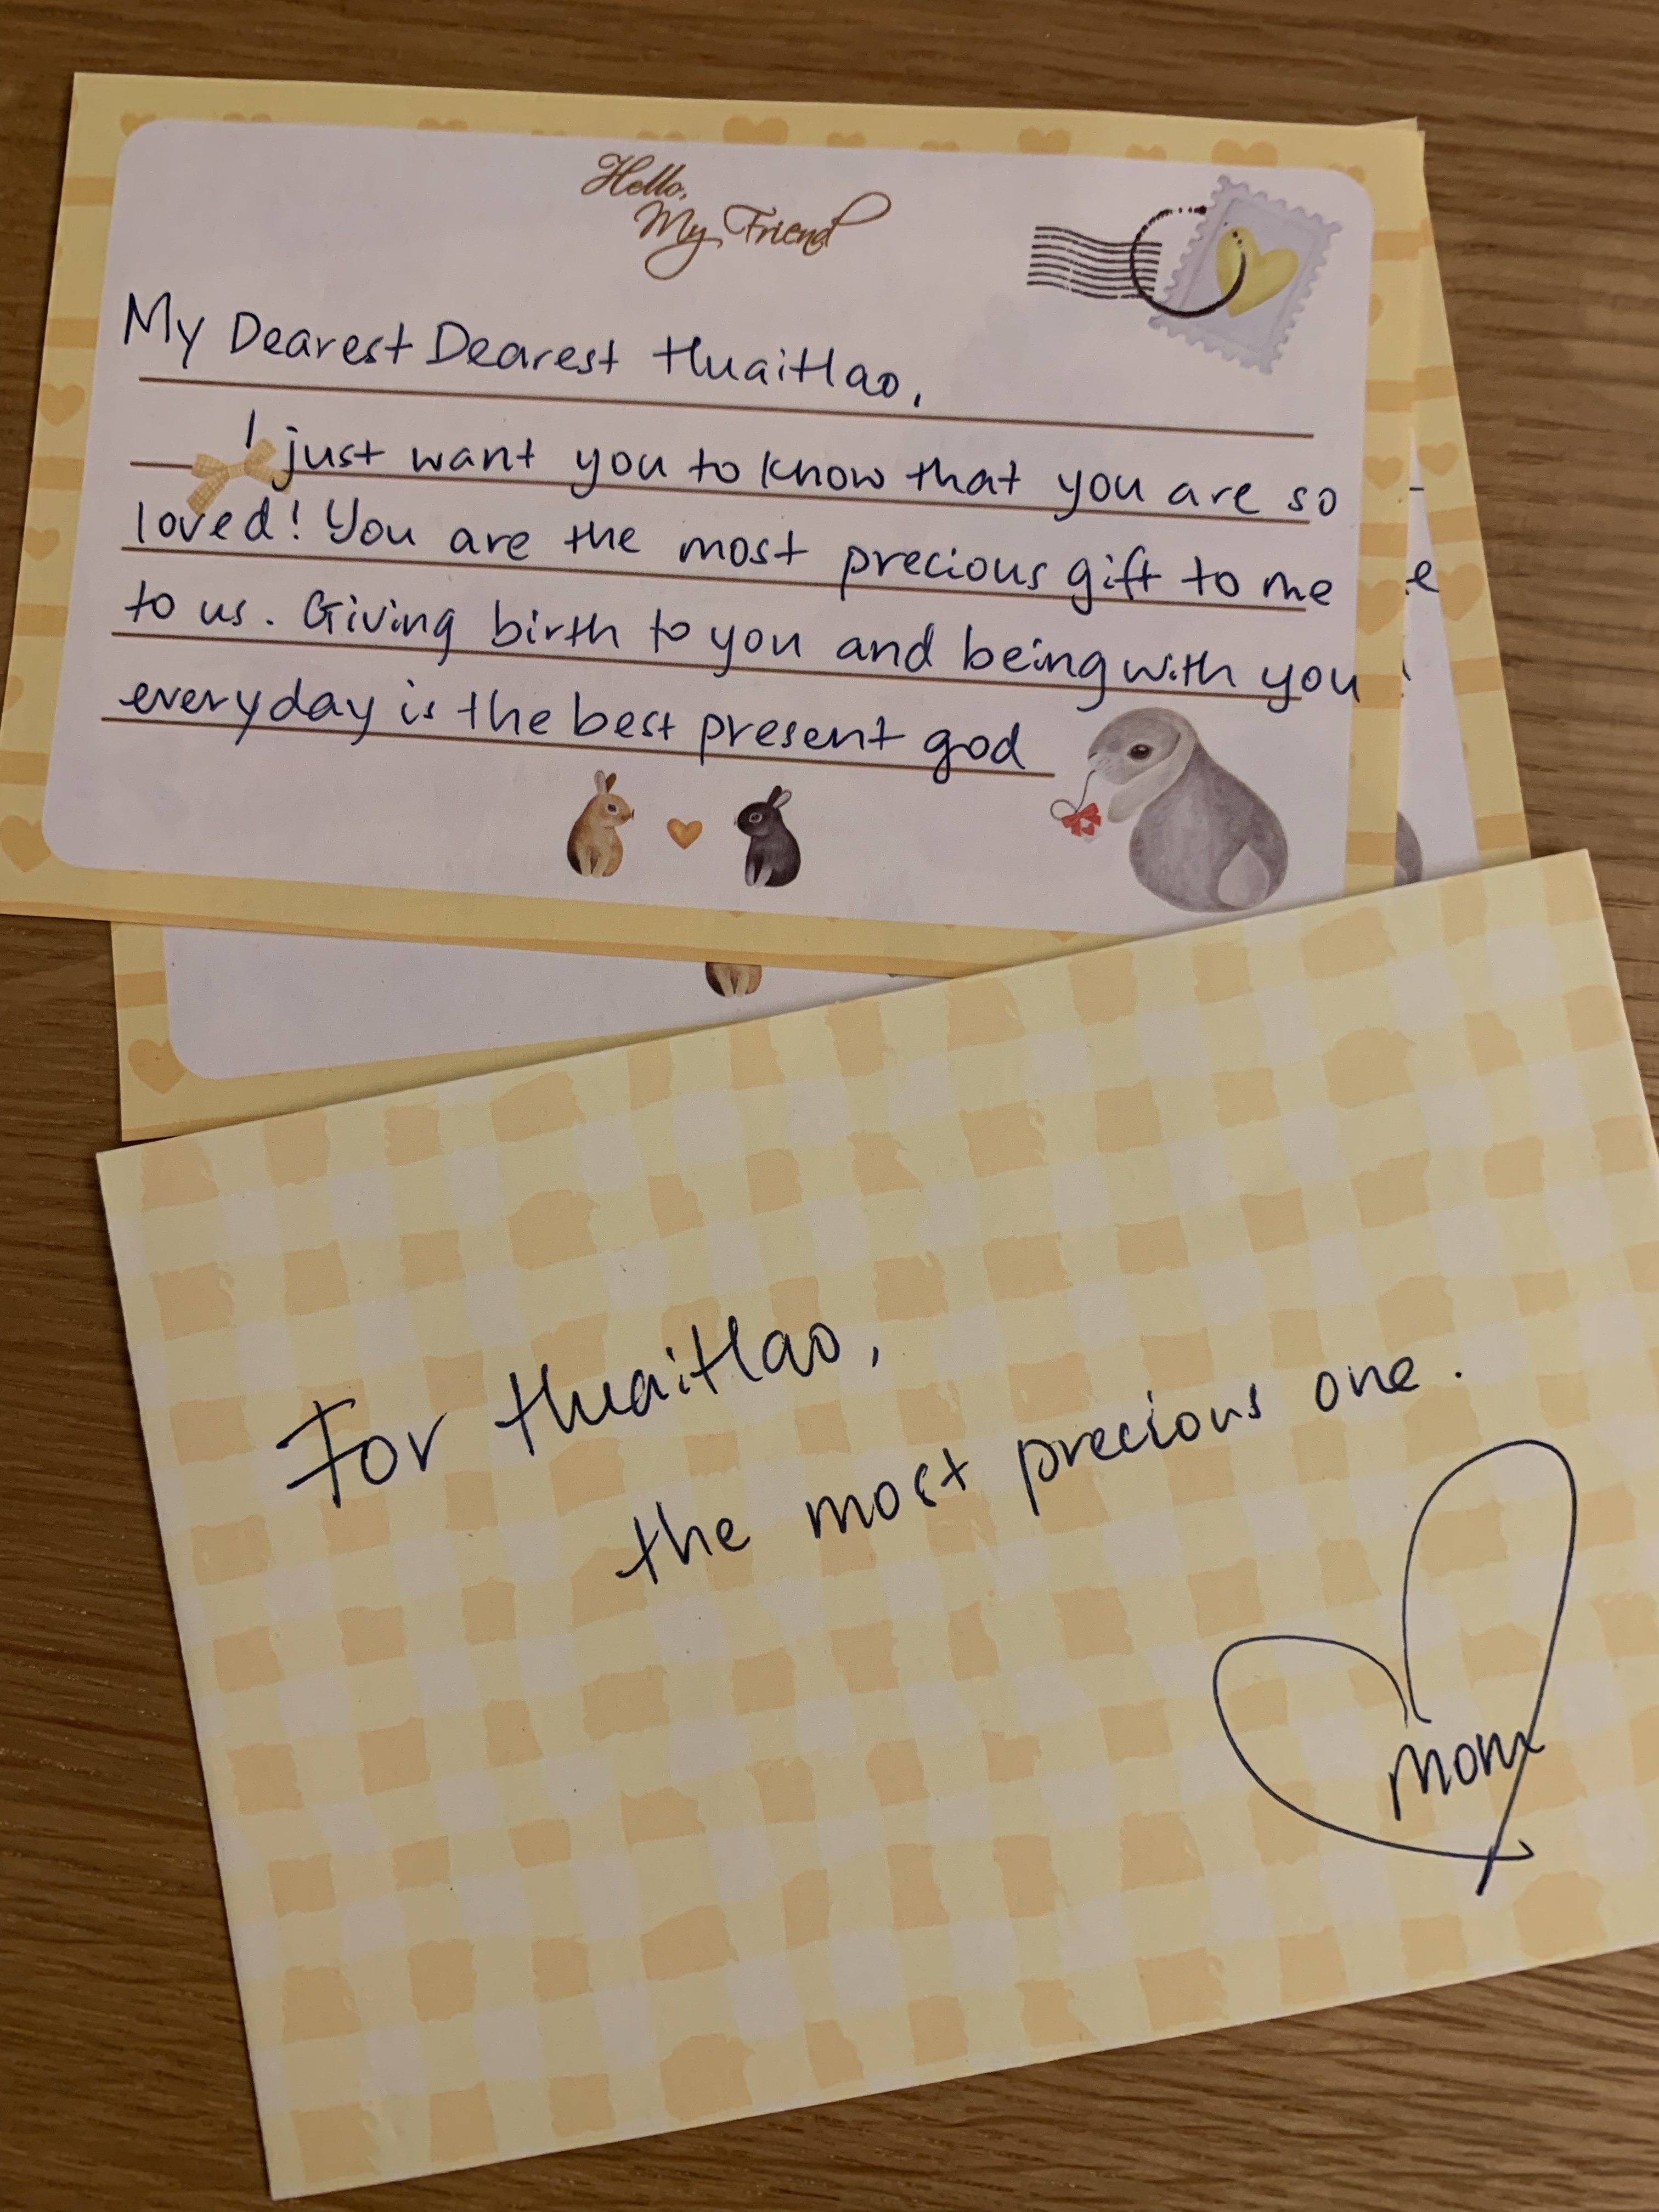 Hello,
My Friend
My Dearest Dearest HuaiHao,
I just want you to know that you are so
loved! You are the most precious gift to me
to us. Giving birth to you and being with you
everyday is the best present god
e
For HuaiHao,
the most precious one.
Mom